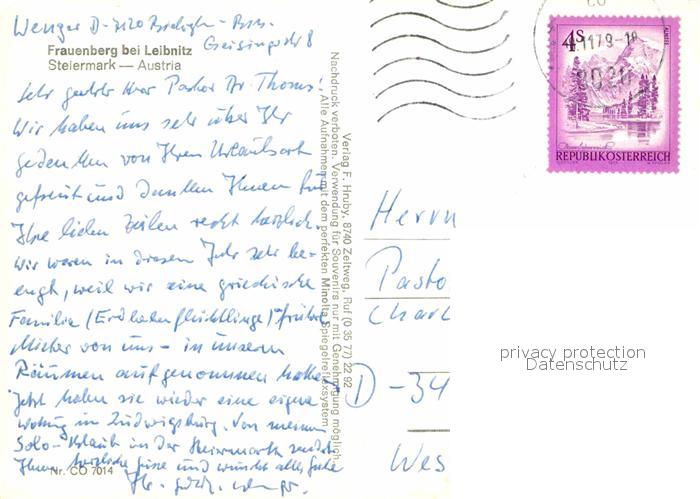 Wenger D-7120 Bietigh.-Biss.
Geisingerstr 8
Frauenberg bei Leibnitz
Steiermark — Austria
Sehr geehrter Herr Pastor Dr. Thoms!
Wir haben uns sehr über Ihr
Gedenken von Ihrem Urlaubsort
gefreut und danken Ihnen für
Ihre lieben Zeilen recht herzlich.
Wir waren in diesem Jahr sehr be-
engt, weil wir eine griechische
Familie (Erdbebenflüchtlinge) frühere
Mieter von uns - in unseren
Räumen aufgenommen hatten.
Jetzt haben sie wieder eine eigene
in Ludwigsburg. Von meinem
Solo-Urlaub in der Steiermark sende
Ihnen herzliche Grüsse und wünscht alles Gute
Ihr
Nr. CO 7014
Verlag F. Hruby, 8740 Zeltweg, Ruf (0 35 77) 22 92
Nachdruck verboten. Verwendung für Souvenirs nur mit Genehmigung möglich.
Alle Aufnahmen mit dem perfekten Minolta Spiegelreflexsystem
4S
REPUBLIK ÖSTERREICH
Herrn
Pasto
Charl
D-34
Wes
privacy protection
Datenschutz